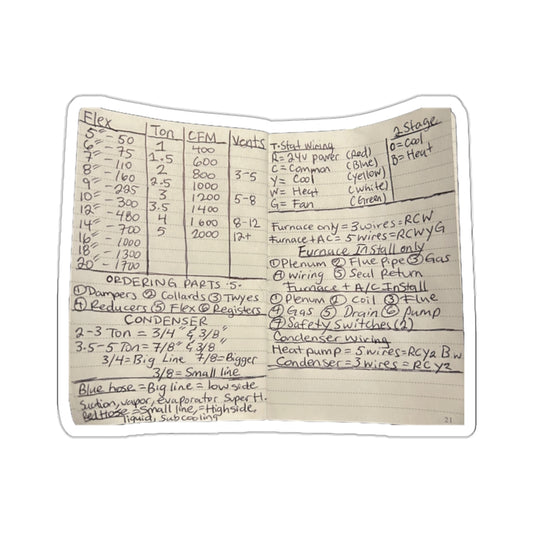 Flex Ton CFM Vents
5" - 50 1 400
6" - 75 1.5 600
7" - 110 2 800 3-5
8" - 160 2.5 1000
9" - 225 3 1200 5-8
10" - 300 3.5 1400
12" - 480 4 1600 8-12
14" - 700 5 2000 12+
16" - 1000
18" - 1300
20" - 1700
ORDERING PARTS 5.
① Dampers ② Collards ③ Twyes
④ Reducers ⑤ Flex ⑥ Registers
CONDENSER
2-3 Ton = 3/4" & 3/8"
3.5-5 Ton = 7/8" & 3/8"
3/4 = Big Line 7/8 = Bigger
3/8 = Small line
Blue hose = Big line = low side
Suction, vapor, evaporator Super H.
Red Hose = Small line, = Highside,
liquid, Subcooling
T-Stat Wiring
R = 24v power (Red)
C = Common (Blue)
Y = Cool (Yellow)
W = Heat (White)
G = Fan (Green)
2-Stage
O = Cool
B = Heat
Furnace only = 3 wires = RCW
Furnace + AC = 5 wires = RCWYG
Furnace Install only
① Plenum ② Flue Pipe ③ Gas
④ Wiring ⑤ Seal Return
Furnace + A/C Install
① Plenum ② Coil ③ Flue
④ Gas ⑤ Drain ⑥ Pump
⑦ Safety Switches (2)
Condenser Wiring
Heat pump = 5 wires = RCY2 B W
Condenser = 3 wires = RCY2
21